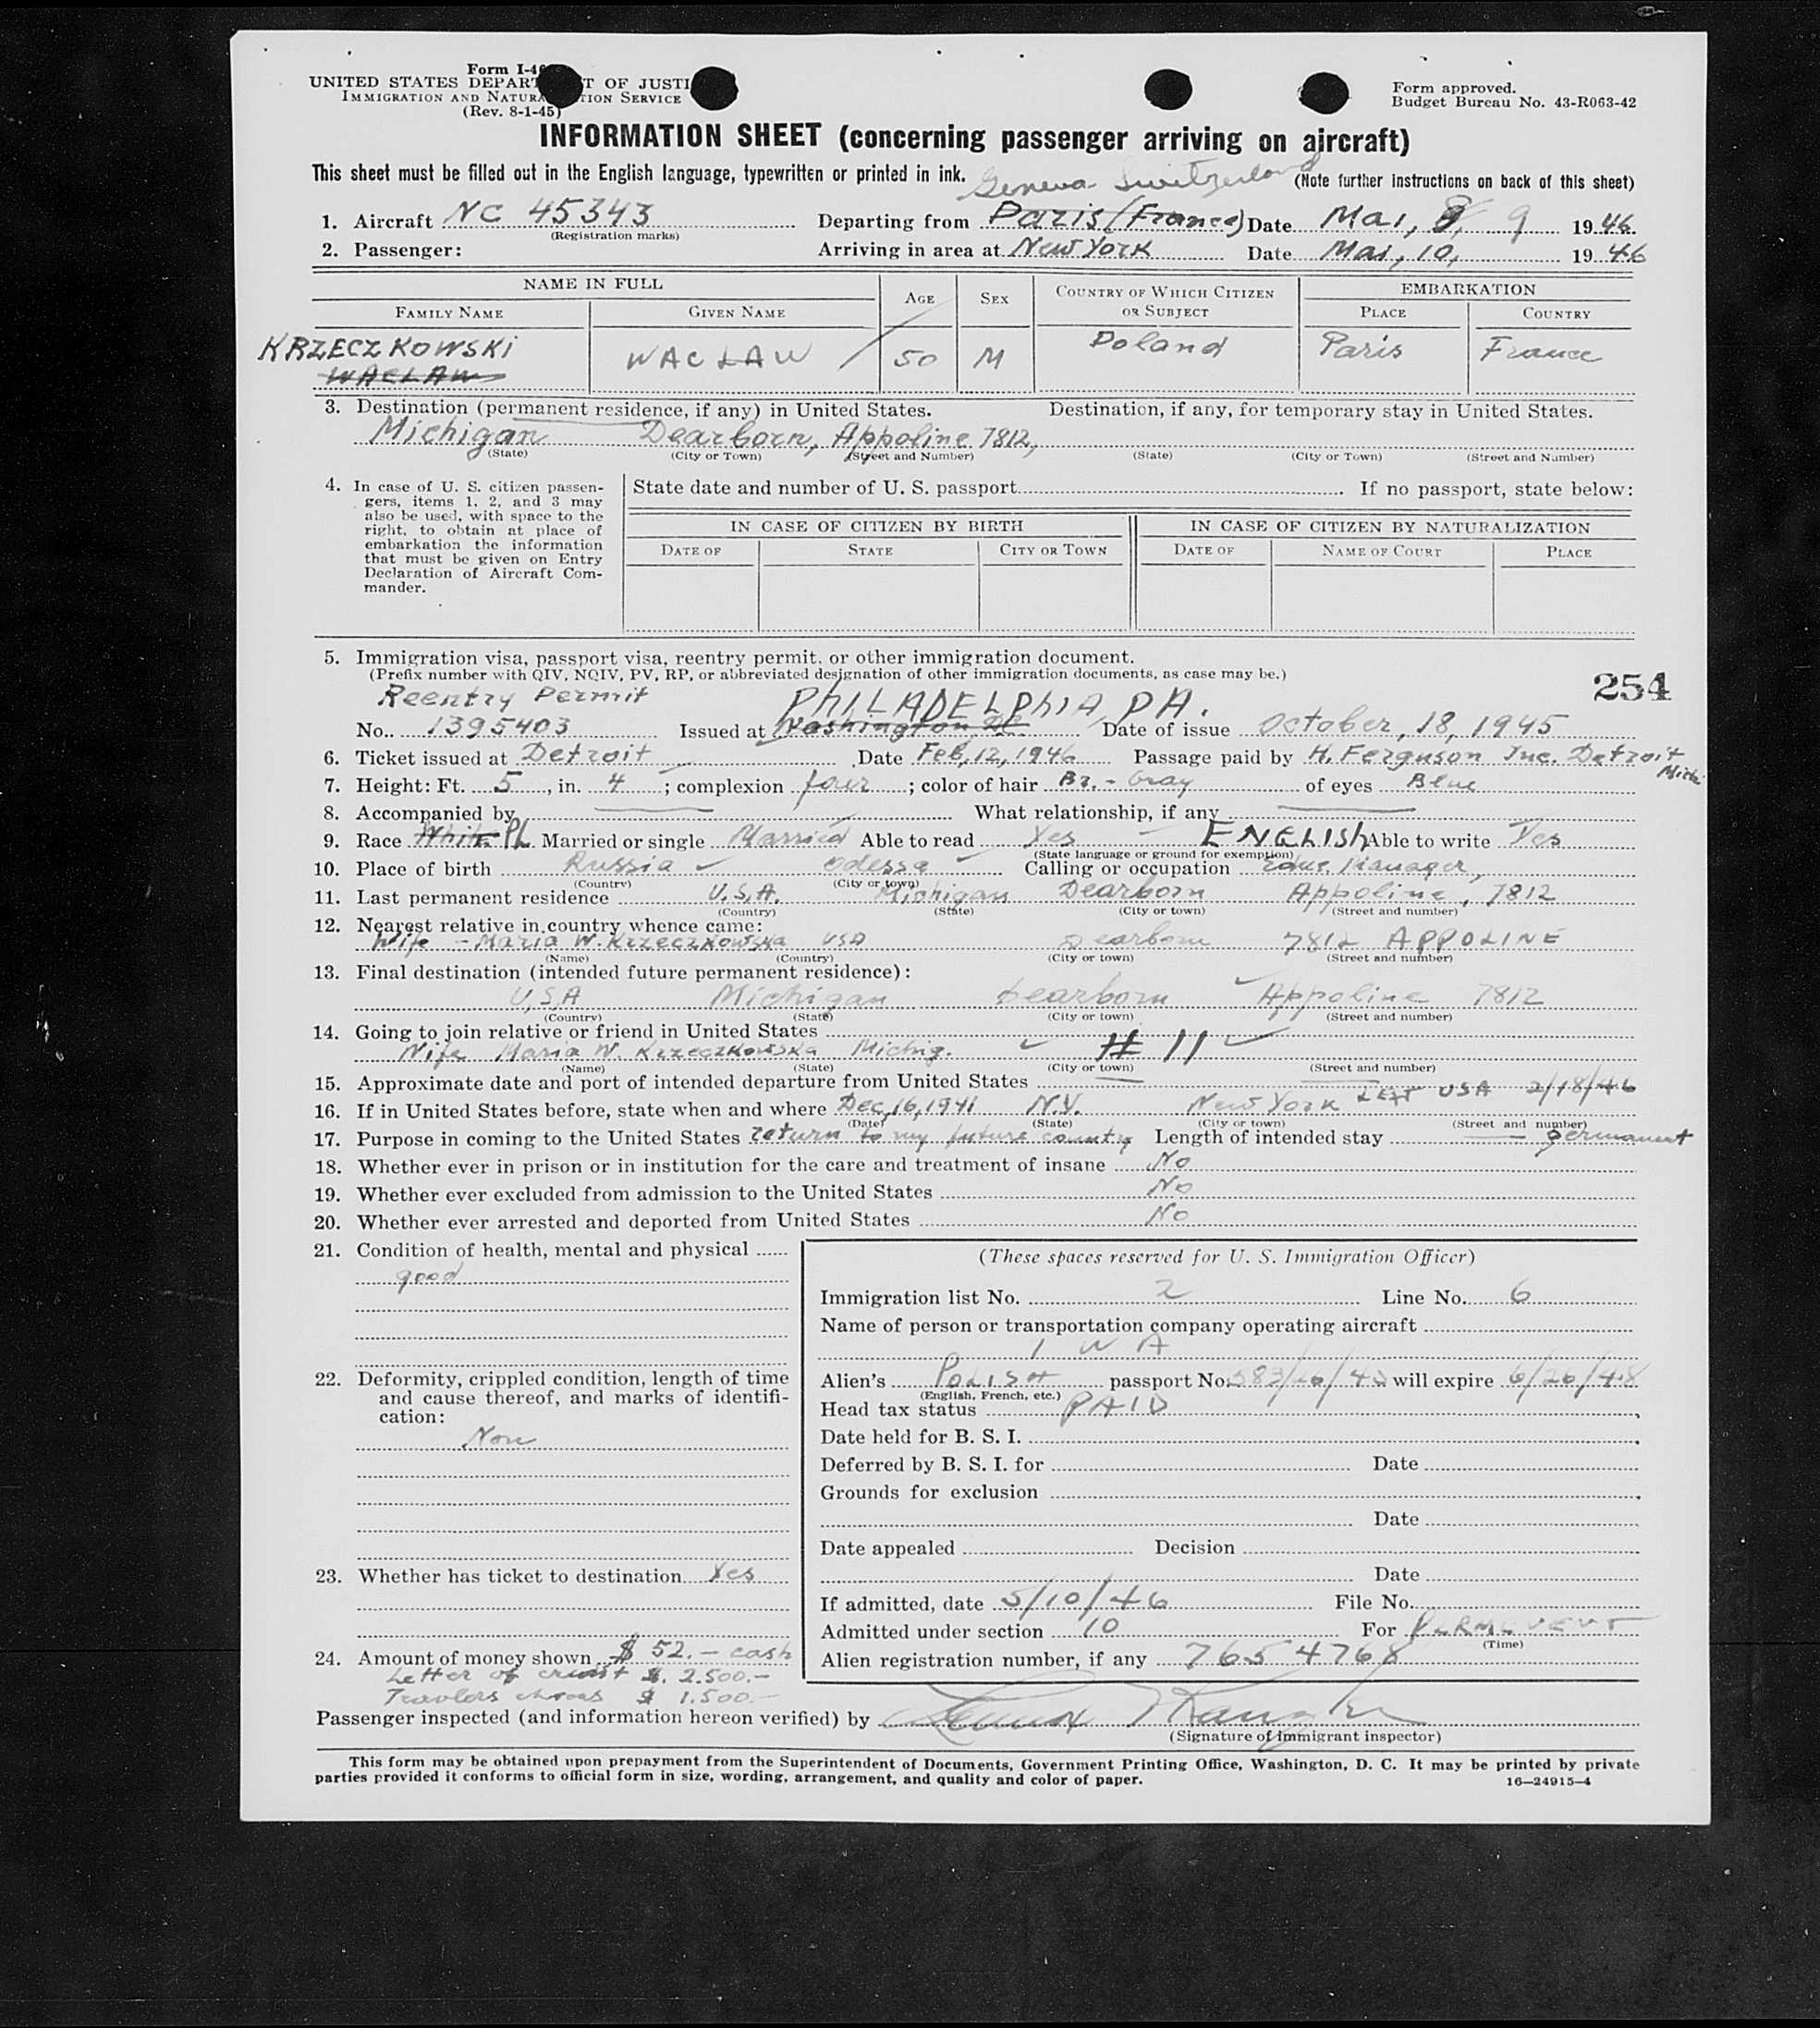 Form I-4
UNITED STATES DEPART T OF JUSTI
IMMIGRATION AND NATURA TION SERVICE
(Rev. 8-1-45)
Form approved.
Budget Bureau No. 43-R063-42
INFORMATION SHEET (concerning passenger arriving on aircraft)
This sheet must be filled out in the English language, typewritten or printed in ink. Geneva Switzerland (Note further instructions on back of this sheet)
1. Aircraft NC 45343 Departing from Paris (France) Date Mai, 8, 9 1946.
(Registration marks)
2. Passenger: Arriving in area at New York Date Mai, 10, 1946
NAME IN FULL AGE SEX COUNTRY OF WHICH CITIZEN OR SUBJECT EMBARKATION
FAMILY NAME GIVEN NAME PLACE COUNTRY
KRZECZKOWSKI WACŁAW 50 M Poland Paris France
WACŁAW
3. Destination (permanent residence, if any) in United States. Destination, if any, for temporary stay in United States.
Michigan Dearborn, Appoline 7812,
(State) (City or Town) (Street and Number) (State) (City or Town) (Street and Number)
4. In case of U. S. citizen passen-
gers, items 1, 2, and 3 may
also be used, with space to the
right, to obtain at place of
embarkation the information
that must be given on Entry
Declaration of Aircraft Com-
mander.
State date and number of U. S. passport If no passport, state below:
IN CASE OF CITIZEN BY BIRTH IN CASE OF CITIZEN BY NATURALIZATION
DATE OF STATE CITY OR TOWN DATE OF NAME OF COURT PLACE
5. Immigration visa, passport visa, reentry permit, or other immigration document.
(Prefix number with QIV, NQIV, PV, RP, or abbreviated designation of other immigration documents, as case may be.)
254
Reentry Permit PHILADELPHIA, PA.
No. 1395403 Issued at Washington DC Date of issue October, 18, 1945
6. Ticket issued at Detroit Date Feb, 12, 1946 Passage paid by H. Ferguson Inc. Detroit Mich
7. Height: Ft. 5, in. 4; complexion fair; color of hair Br. - Gray of eyes Blue
8. Accompanied by What relationship, if any
9. Race White PL Married or single Married Able to read Yes ENGLISH Able to write Yes
(State language or ground for exemption)
10. Place of birth Russia Odessa Calling or occupation Manager,
(Country) (City or town)
11. Last permanent residence U.S.A. Michigan Dearborn Appoline, 7812
(Country) (State) (City or town) (Street and number)
12. Nearest relative in country whence came:
Wife - Maria W. Krzeczkowska USA Dearborn 7812 APPOLINE
(Name) (Country) (City or town) (Street and number)
13. Final destination (intended future permanent residence):
U.S.A Michigan Dearborn Appoline 7812
(Country) (State) (City or town) (Street and number)
14. Going to join relative or friend in United States
Wife Maria W. Krzeczkowska Michig. # 11
(Name) (State) (City or town) (Street and number)
15. Approximate date and port of intended departure from United States
16. If in United States before, state when and where Dec, 16, 1941 N.Y. New York LEFT USA 2/18/46
(Date) (State) (City or town) (Street and number)
17. Purpose in coming to the United States return to my future country Length of intended stay permanent
18. Whether ever in prison or in institution for the care and treatment of insane No
19. Whether ever excluded from admission to the United States No
20. Whether ever arrested and deported from United States No
21. Condition of health, mental and physical
good
22. Deformity, crippled condition, length of time
and cause thereof, and marks of identifi-
cation:
Non
23. Whether has ticket to destination Yes
24. Amount of money shown $ 52.- cash
Letter of credit $. 2.500.-
$ 1.500.-
(These spaces reserved for U. S. Immigration Officer)
Immigration list No. 2 Line No. 6
Name of person or transportation company operating aircraft
T W A
Alien's POLISH passport No. will expire 6/26/48
(English, French, etc.)
Head tax status PAID
Date held for B. S. I.
Deferred by B. S. I. for Date
Grounds for exclusion
Date
Date appealed Decision
Date
If admitted, date 5/10/46 File No.
Admitted under section 10 For PERMANENT
(Time)
Alien registration number, if any 7654768
Passenger inspected (and information hereon verified) by
(Signature of immigrant inspector)
This form may be obtained upon prepayment from the Superintendent of Documents, Government Printing Office, Washington, D. C. It may be printed by private
parties provided it conforms to official form in size, wording, arrangement, and quality and color of paper. 16—24915-4